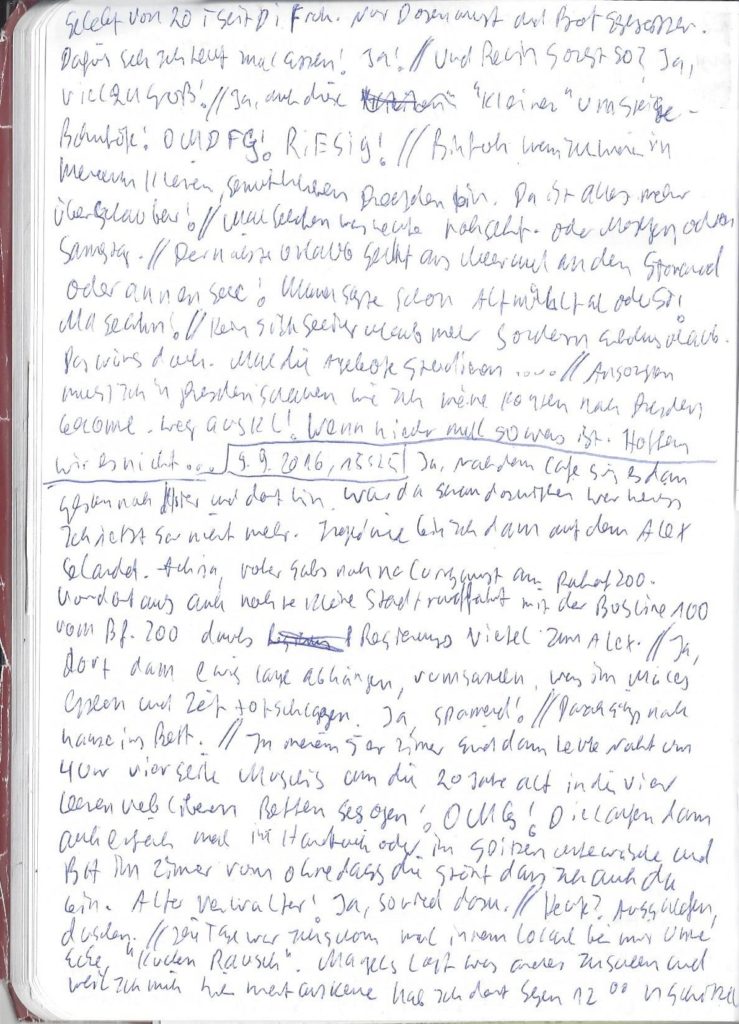 gelebt von 20 € seit Di Früh. Nur Dosenwurst und Brot gegessen.
Dafür geh ich heut mal essen! Ja! // Und Berlin sonst so? Ja,
viel zu groß! // Ja, auch diese "kleinen" Umsteige-
Bahnhöfe! OMDFG! RiESig! // Bin froh wenn ich wieder in
meinem kleinen, gemütlichen Dresden bin. Da ist alles mehr
überschaubar! // Mal sehen was heute noch geht. oder Morgen oder
Samstag. // Der nächste Urlaub geht ans Meer und an den Strand
oder an nen See! Mama sagte schon Altmühltal oder so!
Ma sehn! // Kein Urlaub mehr sondern Urlaub.
Das wärs doch. Mal die Angebote studieren .... // Ansonsten
muss ich in Dresden schauen wie ich meine Konten nach Dresden
bekomme. weg aus KL! Wenn wieder mal sowas ist. Hoffen
wir es nicht... 9.9.2016, 15:25 Ja, nach dem Cafe ging es dann
gestern noch hier und dort hin. war da
ich jetzt gar nicht mehr. Irgendwie bin ich dann auf dem Alex
gelandet. Achja, vorher gabs noch ne Currywurst am Bahnhof Zoo.
Von dort aus auch noch ne kleine Stadtrundfahrt mit der Buslinie 100
vom Bf. ZOO durchs Regierungs Viertel zum Alex. // Ja,
dort dann ewig lange abhängen, rumsammeln, was im Mäces
essen und Zeit totschlagen. Ja, spannend! // Danach gings nach
hause ins Bett. // In meinem 5er Zimmer sind dann heute Nacht um
4 Uhr vier geile Muschis um die 20 Jahre alt in die vier
leeren Betten gezogen! OMG! Die laufen dann
auch einfach mal im Handtuch oder in Spitzenunterwäsche und
BH im Zimmer rum ohne dass die stört dass ich auch da
bin. Alter Verwalter! Ja, soviel dazu. // Heute? Ausschlafen,
duschen. // war mal in nem Lokal bei mir ume
Ecke, "Kuchen Rausch". Mangels Lust was anderes zu suchen und
weil ich mich hier nicht auskenne hab ich dort gegen 12°° n Schnitzel